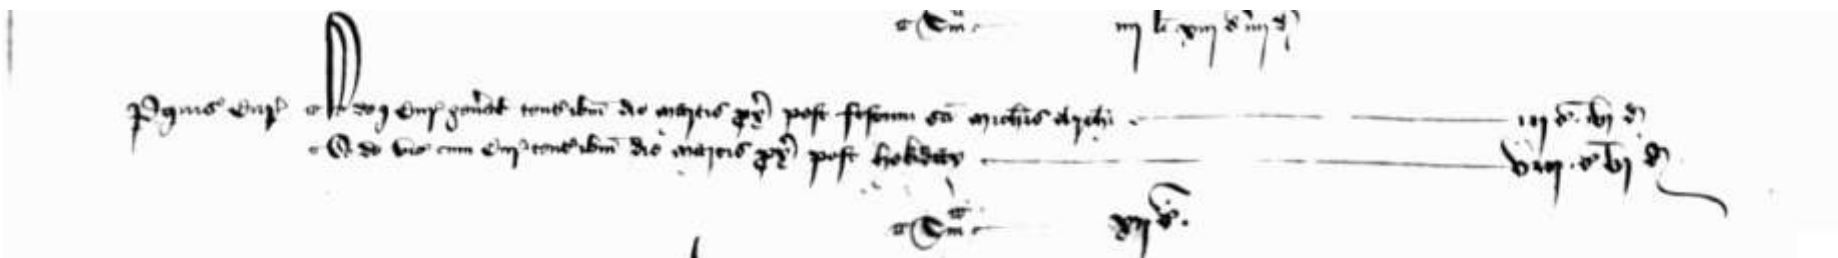 Sma iiij li. xviij s. iiij d.
Pquis Cur De j Cur gen'al tent ibm die martis px post festum sci Mich'is Arch'i iij s. vj d.
Et de vis cum Cur tent ibm die martis px post hokeday viij s. vj d.
Sma xij s.